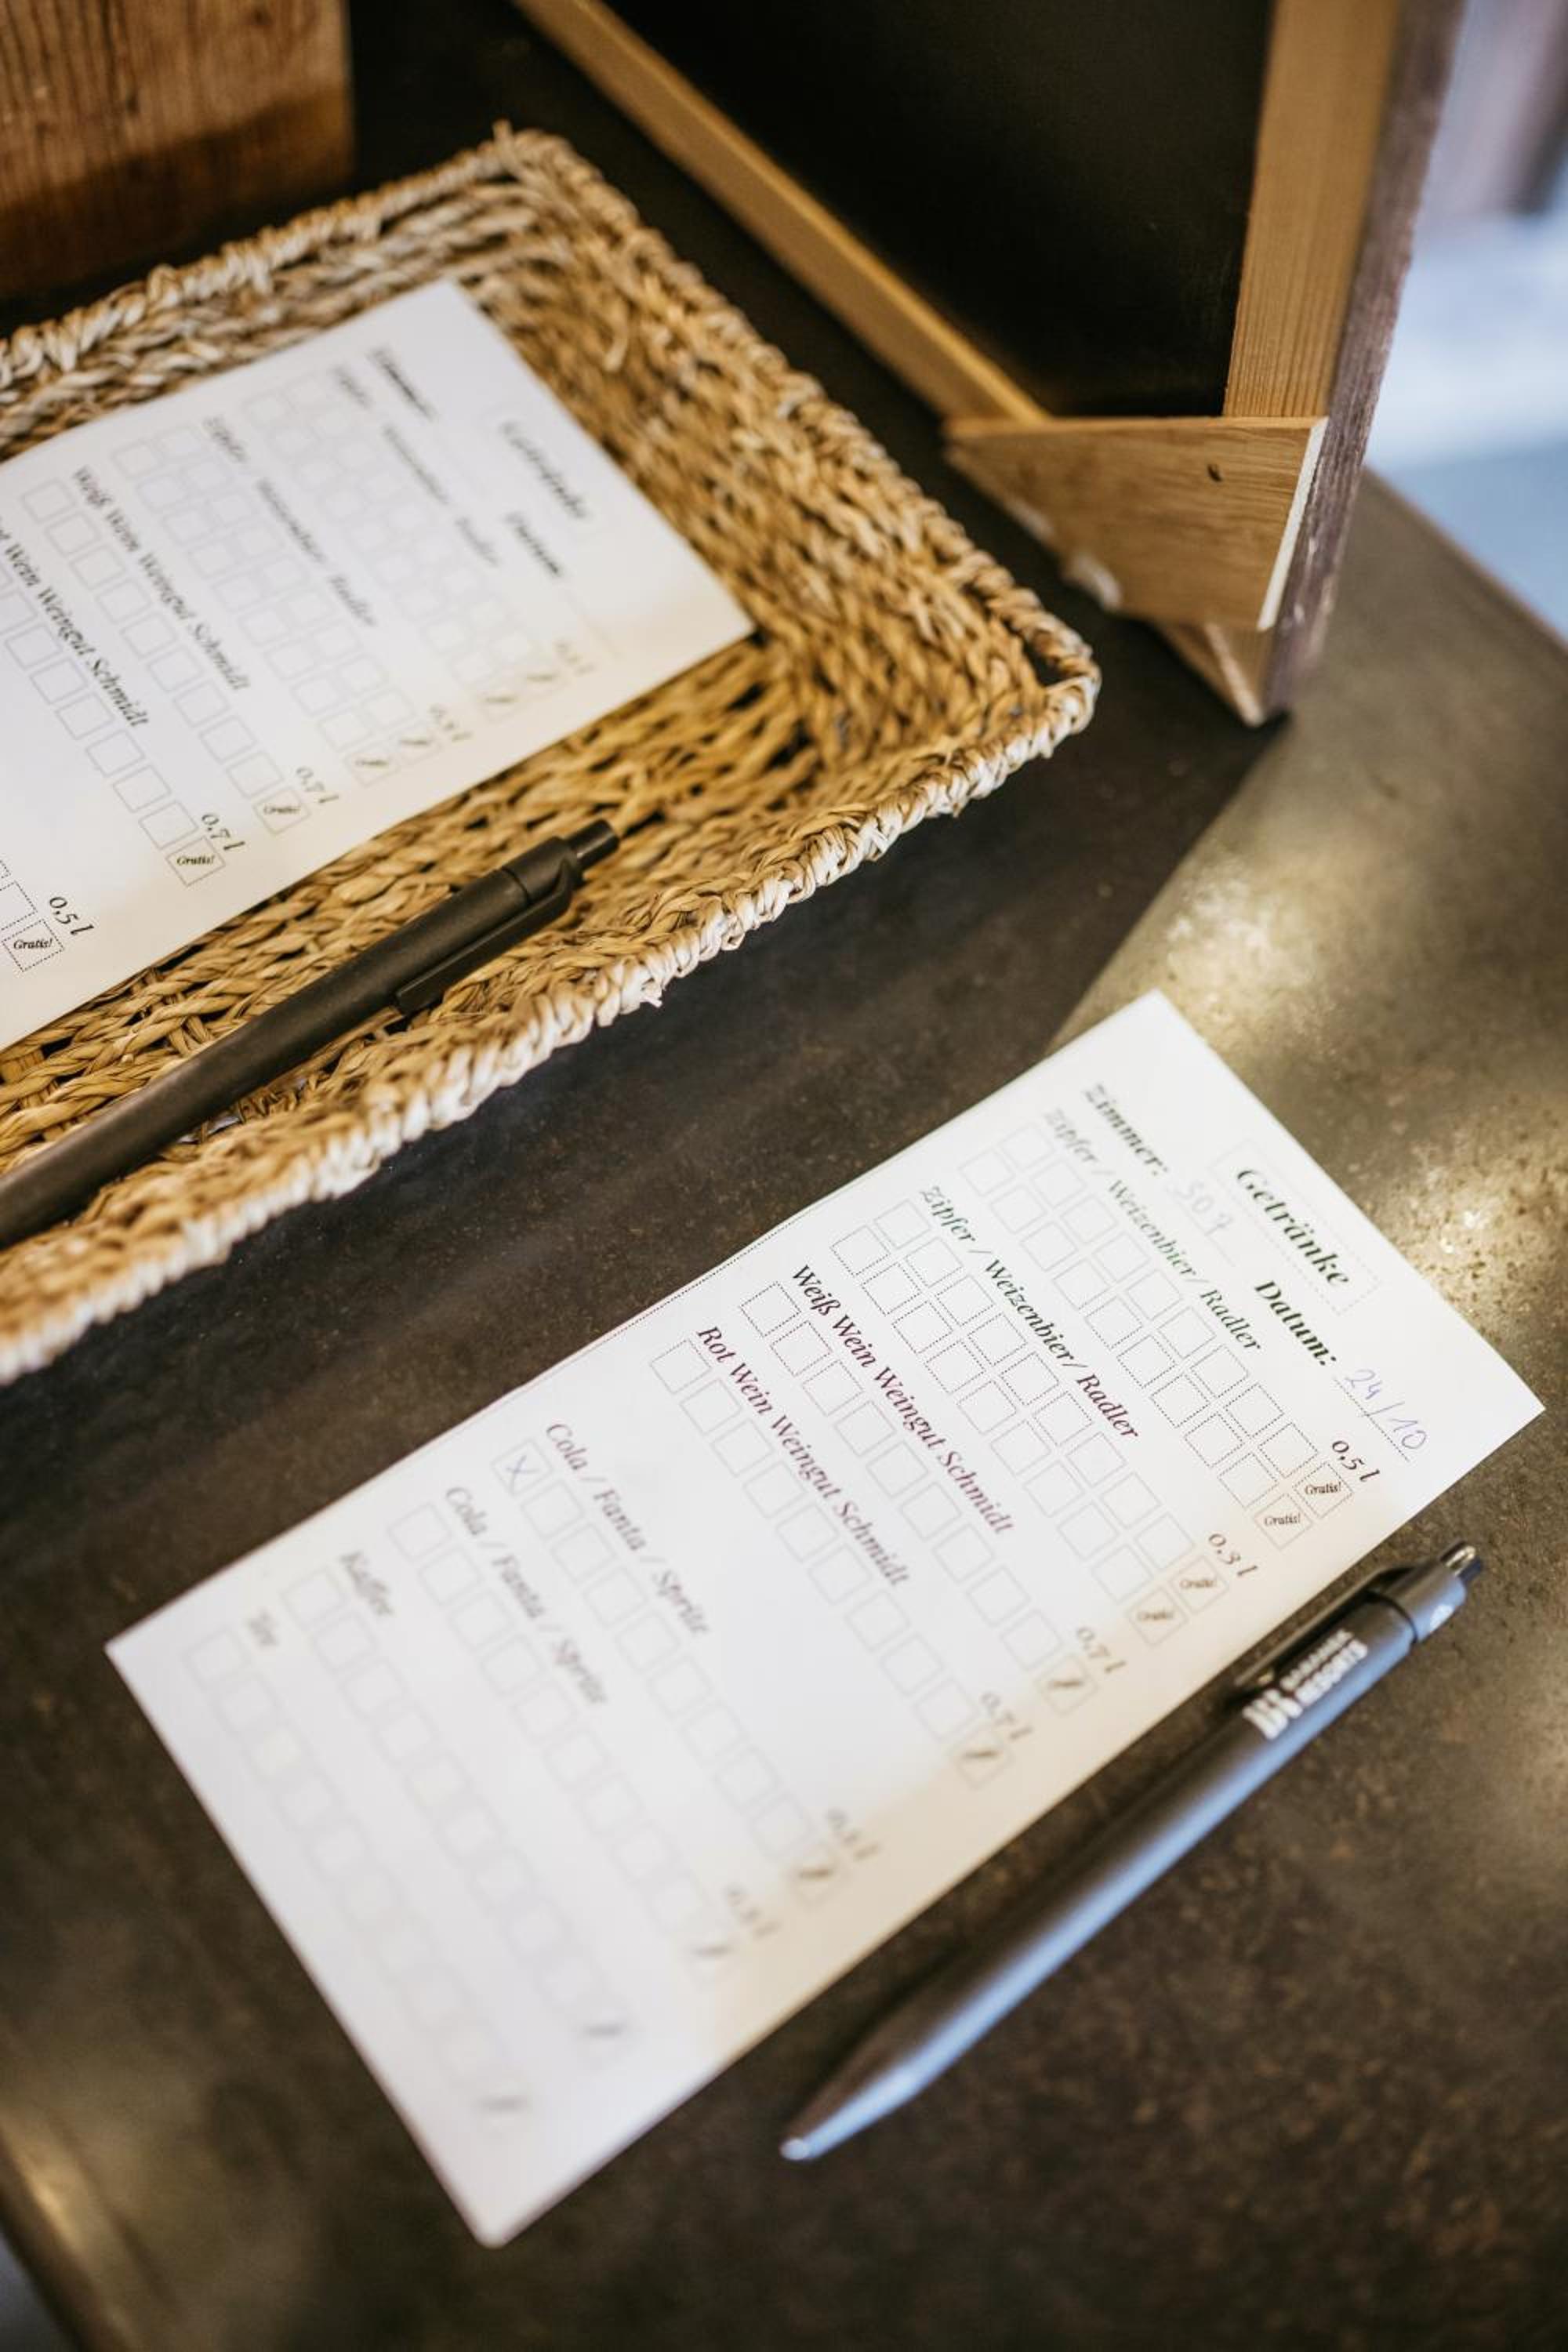 Getränke
Zimmer: 507 Datum: 24/10
Zipfer / Weizenbier / Radler 0,5 l
Gratis!
Gratis!
Zipfer / Weizenbier / Radler 0,3 l
Gratis!
Gratis!
Weiß Wein Weingut Schmidt 0,7 l
Rot Wein Weingut Schmidt 0,7 l
Cola / Fanta / Sprite
X
Cola / Fanta / Sprite
Kaffee
Tee
Getränke
Datum
Weiß Wein Weingut Schmidt 0,7 l
Gratis!
Wein Weingut Schmidt 0,7 l
Gratis!
0,5 l
Gratis!
RESORTS